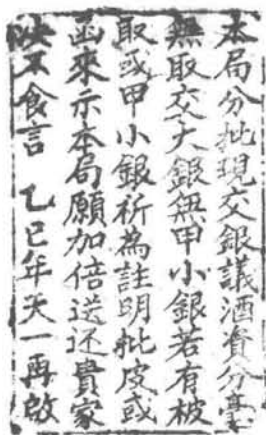 本局分批現交銀議酒資分毫
無取交大銀無甲小銀若有被
取或甲小銀祈為註明批皮或
函來示本局願加倍送还貴家
决不食言 乙巳年天一再啟